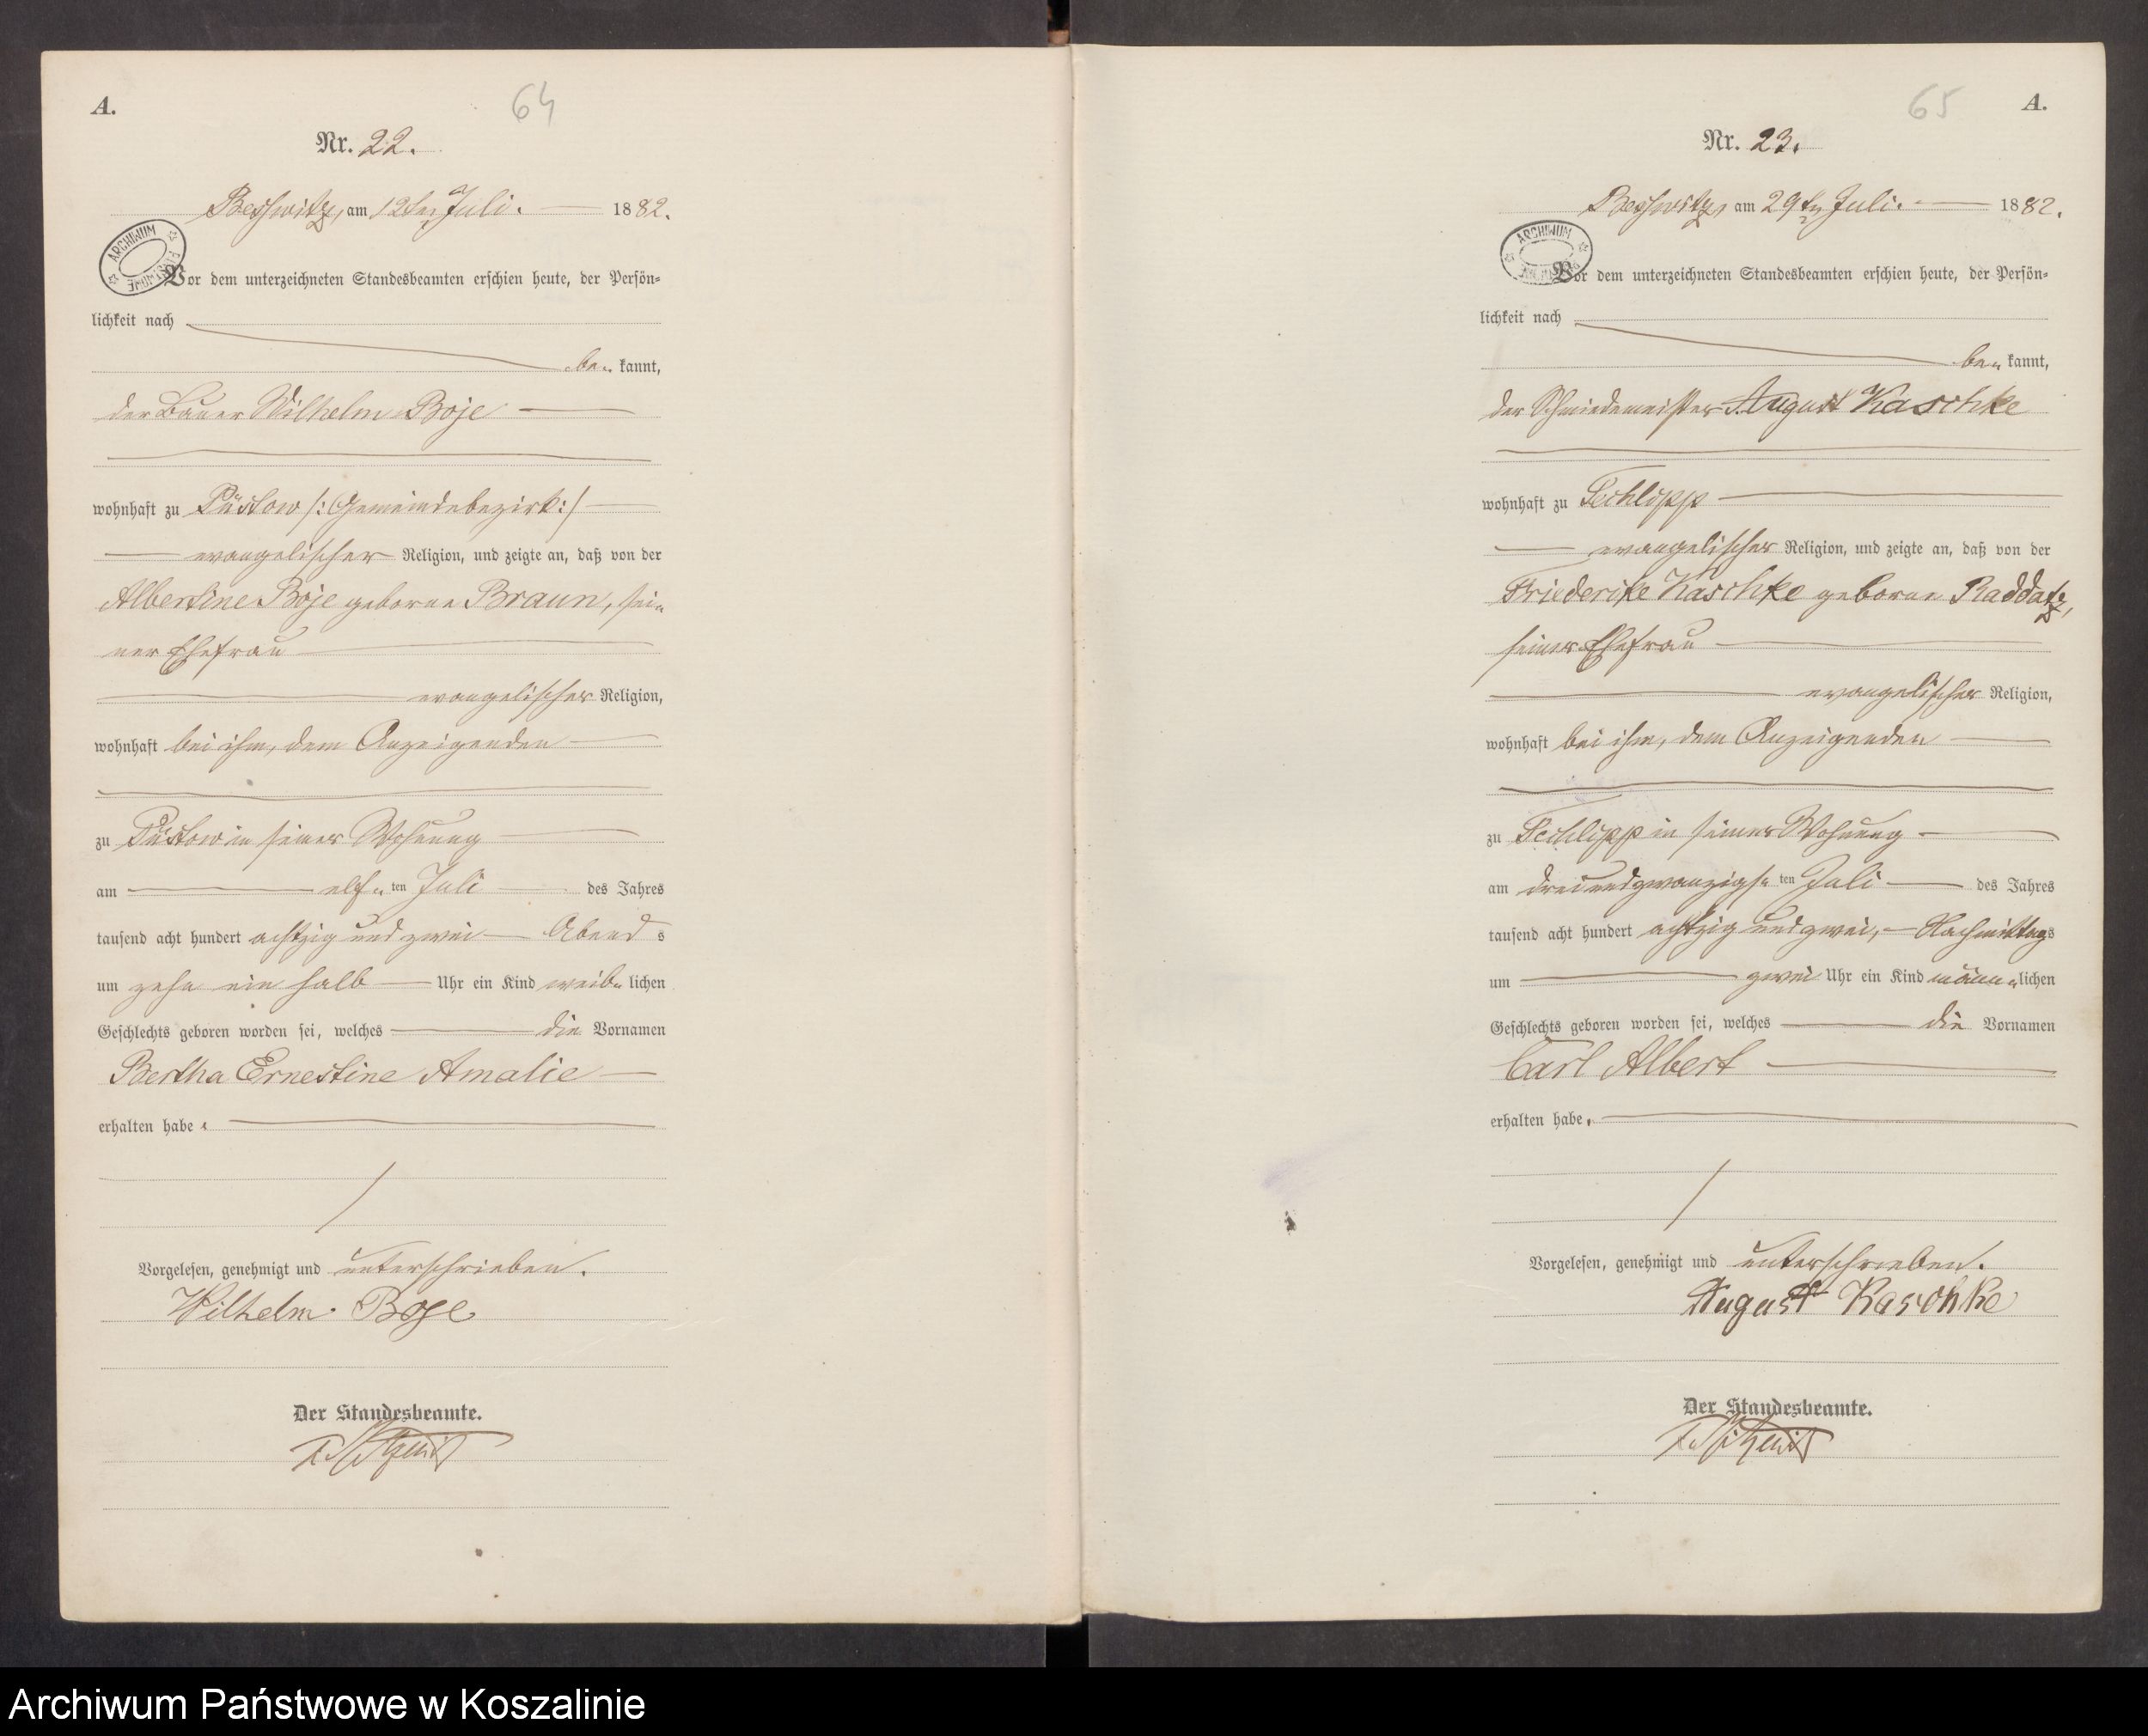 A.
64
Nr. 22.
Beßwitz, am 12ten Juli. 1882.
ARCHIWUM
Vor dem unterzeichneten Standesbeamten erschien heute, der Persön-
lichkeit nach
be- kannt,
der Bauer Wilhelm Boje
wohnhaft zu Püstow /: Gemeindebezirk :/
evangelischer Religion, und zeigte an, daß von der
Albertine Boje geborne Braun, sei-
ner Ehefrau
evangelischer Religion,
wohnhaft bei ihm, dem Anzeigenden
zu Püstow in seiner Wohnung
am elf- ten Juli des Jahres
tausend acht hundert achtzig und zwei Abend s
um zehn ein halb Uhr ein Kind weib- lichen
Geschlechts geboren worden sei, welches die Vornamen
Bertha Ernestine Amalie
erhalten habe.
Vorgelesen, genehmigt und unterschrieben.
Wilhelm Boje
Der Standesbeamte.
A.
65
Nr. 23.
Beßwitz, am 29ten Juli. 1882.
ARCHIWUM
Vor dem unterzeichneten Standesbeamten erschien heute, der Persön-
lichkeit nach
be- kannt,
der Schmiedemeister August Kaschke
wohnhaft zu Techlipp
evangelischer Religion, und zeigte an, daß von der
Friederike Kaschke geborne Raddatz,
seiner Ehefrau
evangelischer Religion,
wohnhaft bei ihm, dem Anzeigenden
zu Techlipp in seiner Wohnung
am dreiundzwanzigs- ten Juli des Jahres
tausend acht hundert achtzig und zwei, Nachmittags
um zwei Uhr ein Kind männ- lichen
Geschlechts geboren worden sei, welches die Vornamen
Carl Albert
erhalten habe.
Vorgelesen, genehmigt und unterschrieben.
August Kaschke
Der Standesbeamte.
Archiwum Państwowe w Koszalinie